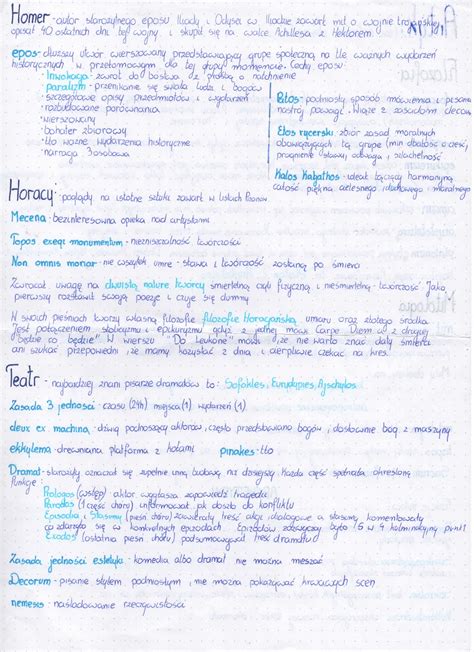 Homer - autor starożytnego eposu Iliady i Odysei w Iliadzie zawarł mit o wojnie trojańskiej
opisał 40 ostatnich dni tej wojny i skupił się na walce Achillesa z Hektorem
epos - dłuższy utwór wierszowany przedstawiający grupę społeczną na tle ważnych wydarzeń
historycznych w przełomowym dla tej grupy momencie. Cechy eposu:
· Inwokacja - zwrot do bóstwa z prośbą o natchnienie
paralizm - przenikanie się świata ludzi i bogów
· szczegółowe opisy przedmiotów i wydarzeń
· rozbudowane porównania
· wierszowany
· bohater zbiorowy
· tło ważne wydarzenia historyczne
· narracja 3 osobowa
Patos - podniosły sposób mówienia i pisania
nastrój powagi. Wiąże z zasadą decorum
Etos rycerski - zbiór zasad moralnych
obowiązujących tą grupę (min dbałość o cześć,
pragnienie sławy, odwaga i szlachetność
Kalos Kagathos - ideał łączący harmonijną
całość piękna cielesnego duchowego i moralnego
Horacy - poglądy na istotne sztuki zawarł w Listach Pizonów
Mecenat - bezinteresowna opieka nad artystami
Topos exegi monumentum - niezniszczalność twórczości
Non omnis moriar - nie wszystek umrę - sława i twórczość zostaną po śmierci
Zwracał uwagę na dwoistą naturę twórcy śmiertelną czyli fizyczną i nieśmiertelną - twórczość Jako
pierwszy rozsławił swoją poezję i czuje się dumny
W swoich pieśniach tworzy własną filozofię filozofię Horacjańską umaru oraz złotego środka
Jest połączeniem stoicyzmu i epikureizmu gdyż z jednej mówi Carpe Diem a z drugiej
"będzie co będzie" W wierszu "Do Leukonoe" mówi, że nie warto znać daty śmierci
ani szukać przepowiedni, że mamy korzystać z dnia i cierpliwie czekać na kres.
Teatr - najbardziej znani pisarze dramatów to: Sofokles, Eurypides, Ajschylos
Zasada 3 jedności - czasu (24h) miejsca (1) wydarzeń (1)
deux ex machina - dźwig podnoszący aktorów, często przedstawiano bogów, dosłownie bóg z maszyny
ekkylema - drewniana platforma z kołami pinakes - tło
Dramat - starożyty oznaczał się zupełnie inną budową niż dzisiejszy. Każda część spełniała określoną
funkcję:
Prologos (wstęp) aktor wygłasza zapowiedź tragedii
Parodos (1 część chóru) informował jak doszło do konfliktu
Epeisodia i Stasimy (pieśń chóru) zawierały treść akcji dialogowe a stasimy, komentowały
co zdarzyło się w konkretnych epizodach. Epizodów zazwyczaj było 5 w 4 kulminacyjny punkt
Exodos (ostatnia pieśń chóru) podsumowywał treść dramatu
Zasada jedności estetyki - komedia albo dramat nie można mieszać
Decorum - pisanie stylem podniosłym, nie można pokazywać krwawych scen
nemezes - naśladowanie rzeczywistości